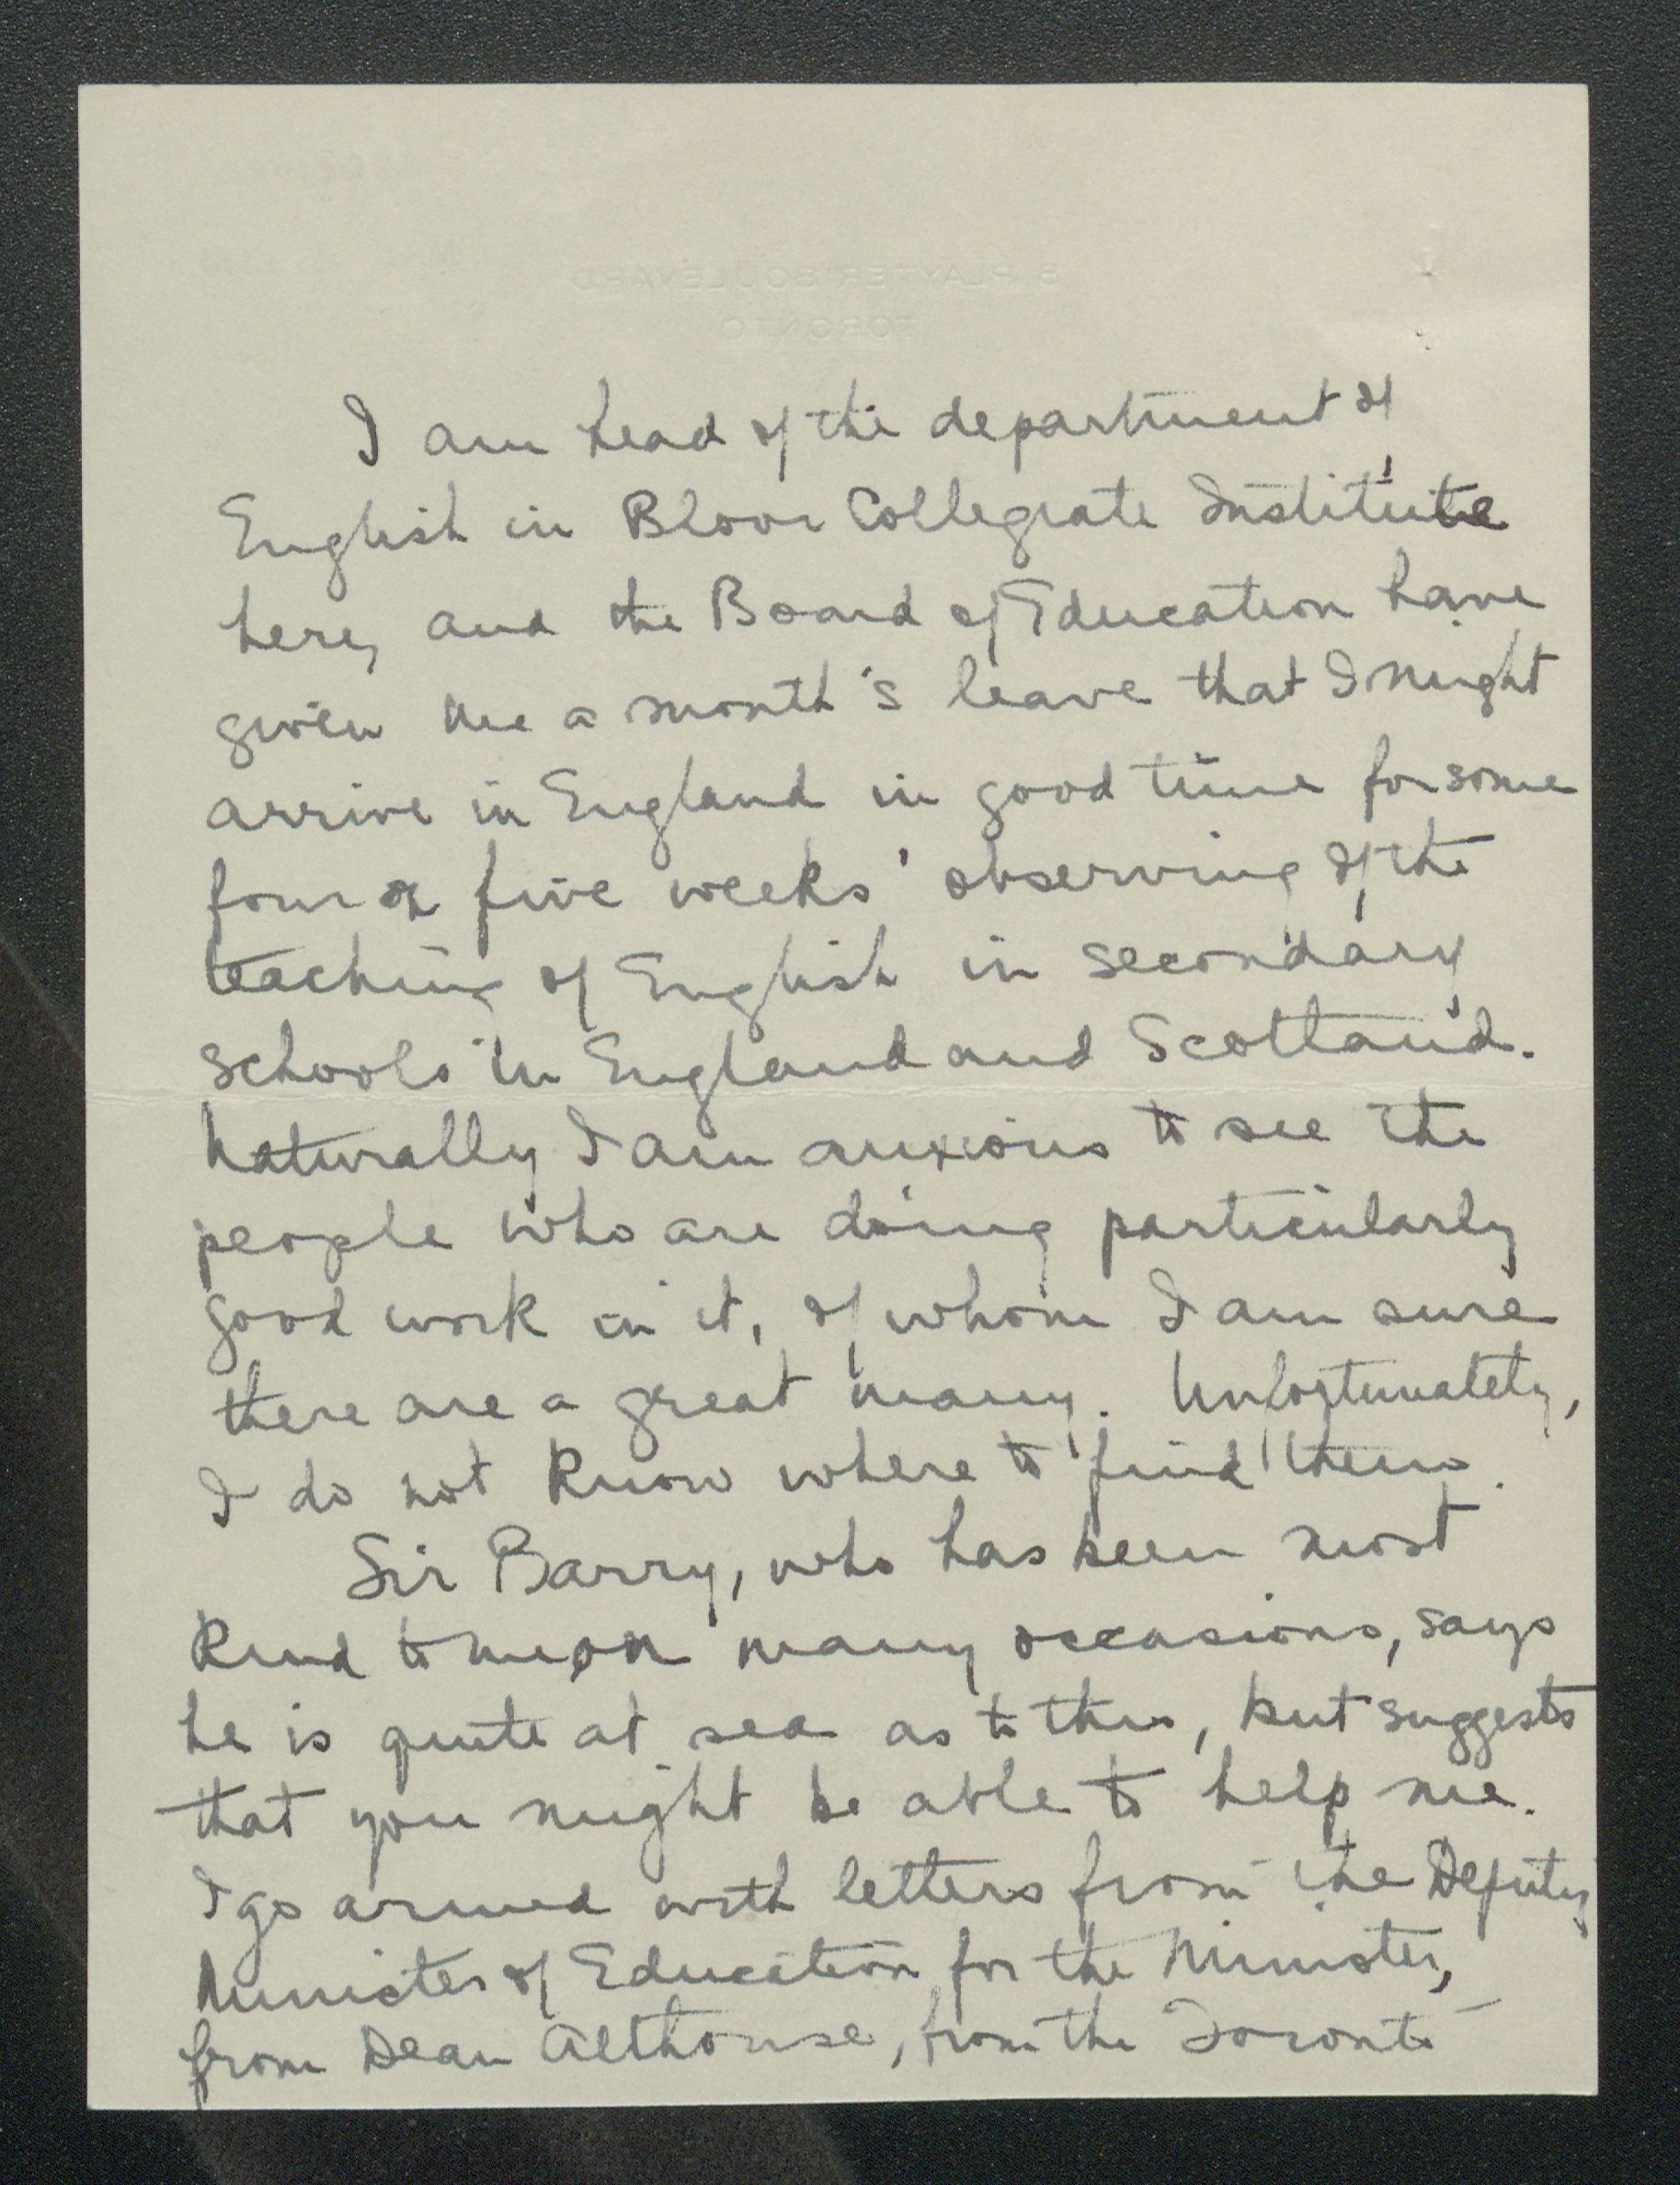 8 PLAYTER BOULEVARD
TORONTO
I am head of the department of
English in Bloor Collegiate Institute
here, and the Board of Education have
given me a month's leave that I might
arrive in England in good time for some
four or five weeks' observing of the
teaching of English in secondary
schools in England and Scotland.
Naturally I am anxious to see the
people who are doing particularly
good work in it, of whom I am sure
there are a great many. Unfortunately,
I do not know where to find them.
Sir Barry, who has been most
kind to me on many occasions, says
he is quite at sea as to this, but suggests
that you might be able to help me.
I go armed with letters from the Deputy
Minister of Education for the Minister,
from Dean Althouse, from the Toronto